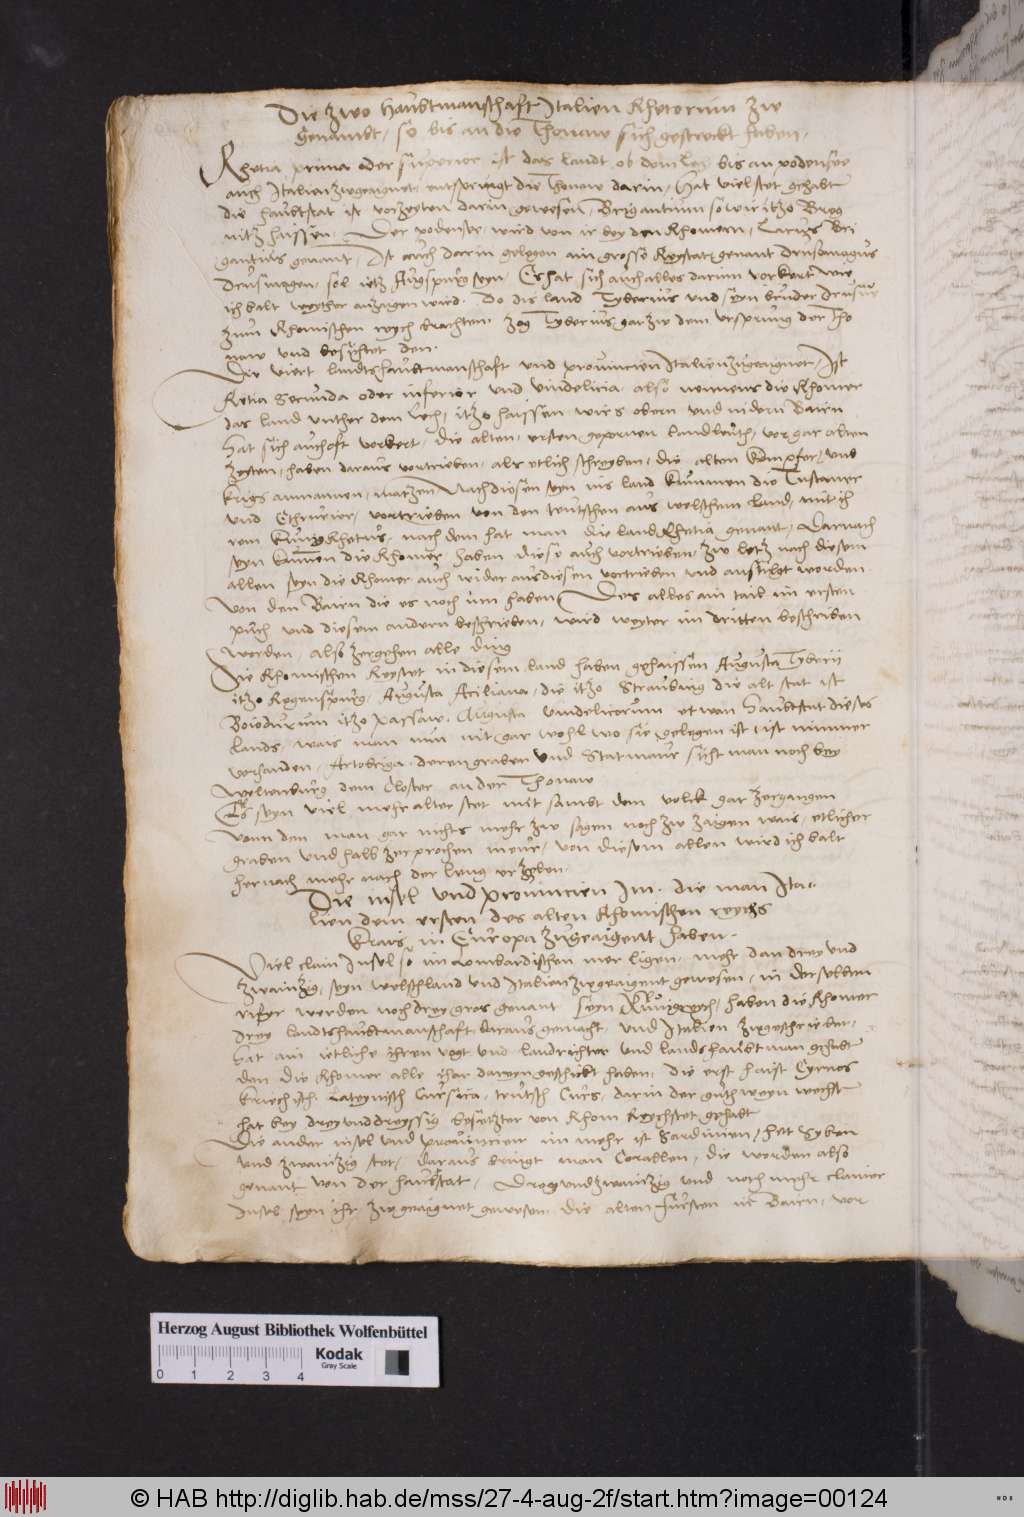 Die zwo Haubtmanschafft Italien Rhetorum zw
Genambt, so bis an die Thonaw sich gestreckt haben.
Rhetia prima oder superior ist das landt ob dem Lech bis an podensee
auch Italien zwgeaignet, entspringt die Thonaw darin, hat viel stet gehabt
die haubtstat ist vorzeyten darin gewesen, Brigantium so wir itzo Breg
nitz haissen. Der podensee wird von ir bey den Rhomern, Lacus Bri
gantius genant, Ist auch darin gelegen ain grosse Reystat genant Drusomagus
Drusumagen, sol itz Augspurg seyn, Es hat sich auch alles darum verkert wie
ich balt weyther anzaigen wird. Do dis land Tyberius und seyn bruder Drusus
zum Rhomischen reych brachten, zog Tyberius gar zw dem ursprung der Tho
naw und besichtet den.
Die viert landtshaubtmanschafft und provincien Italien zugeaignet, Ist
Retia Secunda oder inferior und Vindelicia, also nennens die Rhomer
das land unther dem Lech, itzo haissen wirs obern und nidern Bairn
hat sich auch oft verkert, die alten, ersten gepornen landleuth, vor gar alten
zeyten, haben daraus vertrieben, als etlich schreyben, die alten kempfer, und
krigs amnamen, matzen Nach diesen seyn ins land kummen die Tuscaner
und Ethrurier, vertrieben von den teutschen aus welschem land, mit ih
rem kunig Rhetus, nach dem hat man die land Rhetia genant, Darnach
seyn kummen die Rhomer haben diese auch vertrieben, zw letz nach diesem
allen seyn die Rhomer auch wider aus diesen vertrieben und austilgt worden
von den Bairn die es noch inn haben Des alles ain tail im ersten
puch und diesem andern beschrieben, wird weyter im dritten beschriben
werden, also zergehen alle ding
Die Rhomischen Reystet in diesem land haben gehaissen Augusta Tyberii
itzo Regenspurg, Augusta Aciliana, die itzo Straubing die alt stat ist
Boiodurum itzo Passaw, Augusta Vindelicorum etwan haubtstat dieses
lands, wais man nun nit gar wohl wo sie gelegen ist, ist nimmer
vorhanden, Artobriga, deren graben und Statmaur sicht man noch bey
Weltenburg dem Closter an der Thonaw
Es seyn viel mehr alter stet mit sambt dem volck gar zergangen
vonn den man gar nichts mehr zw sagen noch zw zaigen wais, etlicher
graben und halb zerprochen meur, von diesem allen wird ich balt
hernach mehr nach der leng erzelen.
Die insel und provincien Im. die man Ita-
lien dem ersten des alten Rhomischen reychs
Krais, in Europa zugeaigent haben.
Viel clain Insel so im lombardischen mer ligen, mehr dan drey und
zwainzig, seyn welschland und Italien zwgeaigent gewesen, in derselben
rifyr werden noch drey gros genant seyn Kunigreych, haben die Rhomer
drey landtshaubtmanschafft daraus gemacht, und Italien zwgeschrieben,
hat ain ietliche ihren vogt und landrichter und landshaubtman gehabt
den die Rhomer alle ihar dareyn geschickt haben, die erst haist Cyrnos
kriechisch, Lateynisch Corsica, teutsch Curs, darin der guth weyn wechst
hat bey drey und dreyssig besetzter von Rhom Reychstet gehabt
Die ander insel und provincien im mehr ist Sardinien, het syben
und zwainzig stet, daraus bringt man Corallen, die werden also
genant von der haubtstat, Drey und zwainzig und noch mehr clainer
Insel seyn ihr zwgeaignet gewesen, die alten fursten in Bairn, vor
Herzog August Bibliothek Wolfenbüttel
Kodak
Gray Scale
0 1 2 3 4
© HAB http://diglib.hab.de/mss/27-4-aug-2f/start.htm?image=00124